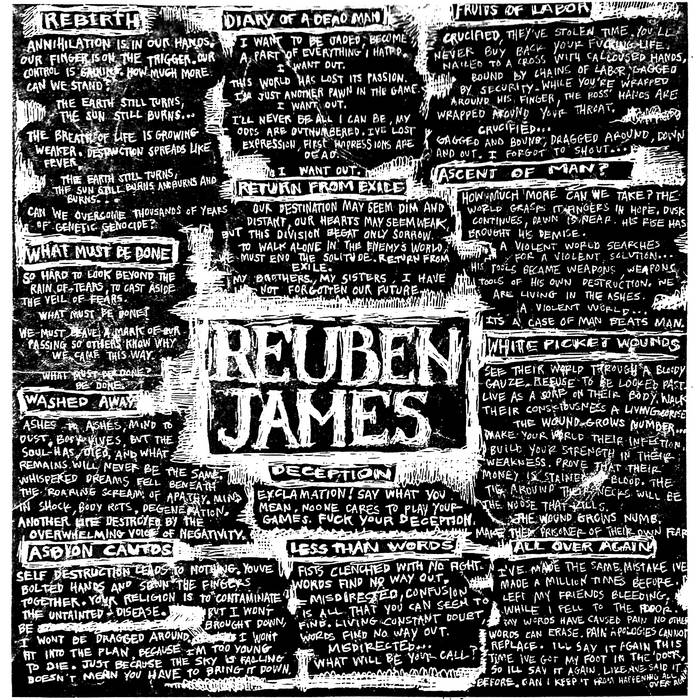 REBIRTH
ANNIHILATION IS IN OUR HANDS.
OUR FINGER IS ON THE TRIGGER. OUR
CONTROL IS GONE. HOW MUCH MORE
CAN WE STAND?
THE EARTH STILL TURNS,
THE SUN STILL BURNS...
THE BREATH OF LIFE IS GROWING
WEAKER. DESTRUCTION SPREADS LIKE
FEVER.
THE EARTH STILL TURNS,
THE SUN STILL BURNS AND BURNS AND
BURNS...
CAN WE OVERCOME THOUSANDS OF YEARS
OF GENETIC GENOCIDE?
WHAT MUST BE DONE
SO HARD TO LOOK BEYOND THE
RAIN OF TEARS, TO CAST ASIDE
THE VEIL OF FEARS.
WHAT MUST BE DONE?
WE MUST LEAVE A MARK OF OUR
PASSING SO OTHERS KNOW WHY
WE CAME THIS WAY.
WHAT MUST BE DONE?
BE DONE.
WASHED AWAY
ASHES TO ASHES, MIND TO
DUST. BODY LIVES, BUT THE
SOUL HAS DIED, AND WHAT
REMAINS WILL NEVER BE THE SAME.
WHISPERED DREAMS FELL BENEATH
THE ROARING SCREAM OF APATHY. MIND
IN SHOCK, BODY ROTS, DEGENERATION,
ANOTHER LIFE DESTROYED BY THE
OVERWHELMING VOICE OF NEGATIVITY.
ASDION CAUTOS
SELF DESTRUCTION LEADS TO NOTHING, YOUVE
BOLTED HANDS AND SEWN THE FINGERS
TOGETHER. YOUR RELIGION IS TO CONTAMINATE
THE UNTAINTED DISEASE. BUT I WONT
BE BROUGHT DOWN,
I WONT BE DRAGGED AROUND, I WONT
FIT INTO THE PLAN BECAUSE IM TOO YOUNG
TO DIE. JUST BECAUSE THE SKY IS FALLING
DOESN'T MEAN YOU HAVE TO BRING IT DOWN.
DIARY OF A DEAD MAN
I WANT TO BE JADED, BECOME
A PART OF EVERYTHING I HATED.
I WANT OUT.
THIS WORLD HAS LOST ITS PASSION.
I'M JUST ANOTHER PAWN IN THE GAME.
I WANT OUT.
I'LL NEVER BE ALL I CAN BE, MY
ODDS ARE OUTNUMBERED. IVE LOST
EXPRESSION, FIRST IMPRESSIONS ARE
DEAD.
I WANT OUT.
RETURN FROM EXILE
OUR DESTINATION MAY SEEM DIM AND
DISTANT, OUR HEARTS MAY SEEM WEAK,
BUT THIS DIVISION BEGAT ONLY SORROW.
TO WALK ALONE IN THE ENEMY'S WORLD,
WE MUST END THE SOLITUDE. RETURN FROM
EXILE.
MY BROTHERS, MY SISTERS, I HAVE
NOT FORGOTTEN OUR FUTURE
REUBEN
JAMES
DECEPTION
EXCLAMATION! SAY WHAT YOU
MEAN, NO ONE CARES TO PLAY YOUR
GAMES. FUCK YOUR DECEPTION.
LESS THAN WORDS
FISTS CLENCHED WITH NO FIGHT.
WORDS FIND NO WAY OUT.
MISDIRECTED, CONFUSION
IS ALL THAT YOU CAN SEEM TO
FIND. LIVING CONSTANT DOUBT
WORDS FIND NO WAY OUT.
MISDIRECTED...
WHAT WILL BE YOUR CALL?
FRUITS OF LABOR
CRUCIFIED, THEY'VE STOLEN TIME, YOU'LL
NEVER BUY BACK YOUR FUCKING LIFE.
NAILED TO A CROSS WITH CALLOUSED HANDS,
BOUND BY CHAINS OF LABOR, GAGGED
BY SECURITY. WHILE YOU'RE WRAPPED
AROUND HIS FINGER, THE BOSS' HANDS ARE
WRAPPED AROUND YOUR THROAT,
CRUCIFIED...
GAGGED AND BOUND, DRAGGED AROUND, DOWN
AND OUT. I FORGOT TO SHOUT...
ASCENT OF MAN?
HOW MUCH MORE CAN WE TAKE? THE
WORLD GRASPS IT FINGERS IN HOPE, DUSK
CONTINUES, DAWN IS NEAR. HIS RISE HAS
BROUGHT HIS DEMISE.
A VIOLENT WORLD SEARCHES
FOR A VIOLENT SOLUTION...
HIS TOOLS BECAME WEAPONS, WEAPONS,
TOOLS OF HIS OWN DESTRUCTION. WE
ARE LIVING IN THE ASHES.
A VIOLENT WORLD...
ITS A CASE OF MAN BEATS MAN.
WHITE PICKET WOUNDS
SEE THEIR WORLD THROUGH A BLOODY
GAUZE. REFUSE TO BE LOOKED PAST.
LIVE AS A SORE ON THEIR BODY. WALK
THEIR CONSCIOUSNESS A LIVING CORPSE
THE WOUND GROWS NUMBER...
MAKE YOUR WORLD THEIR INFECTION,
BUILD YOUR STRENGTH IN THEIR
WEAKNESS. PROVE THAT THEIR
MONEY IS STAINED BLOOD. THE
TIE AROUND THEIR NECKS WILL BE
THE NOOSE THAT KILLS.
THE WOUND GROWS NUMB.
MAKE THEM PRISONER OF THEIR OWN FEAR
ALL OVER AGAIN
I'VE MADE THE SAME MISTAKE IVE
MADE A MILLION TIMES BEFORE.
LEFT MY FRIENDS BLEEDING,
WHILE I FELL TO THE FLOOR.
MY WORDS HAVE CAUSED PAIN NO OTHER
WORDS CAN ERASE. PAIN APOLOGIES CANNOT
REPLACE. I'LL SAY IT AGAIN THIS
TIME IVE GOT MY FOOT IN THE DOOR,
SO ILL SAY IT AGAIN LIKE IVE SAID IT
BEFORE. CAN I KEEP IT FROM HAPPENING ALL
OVER AGAIN